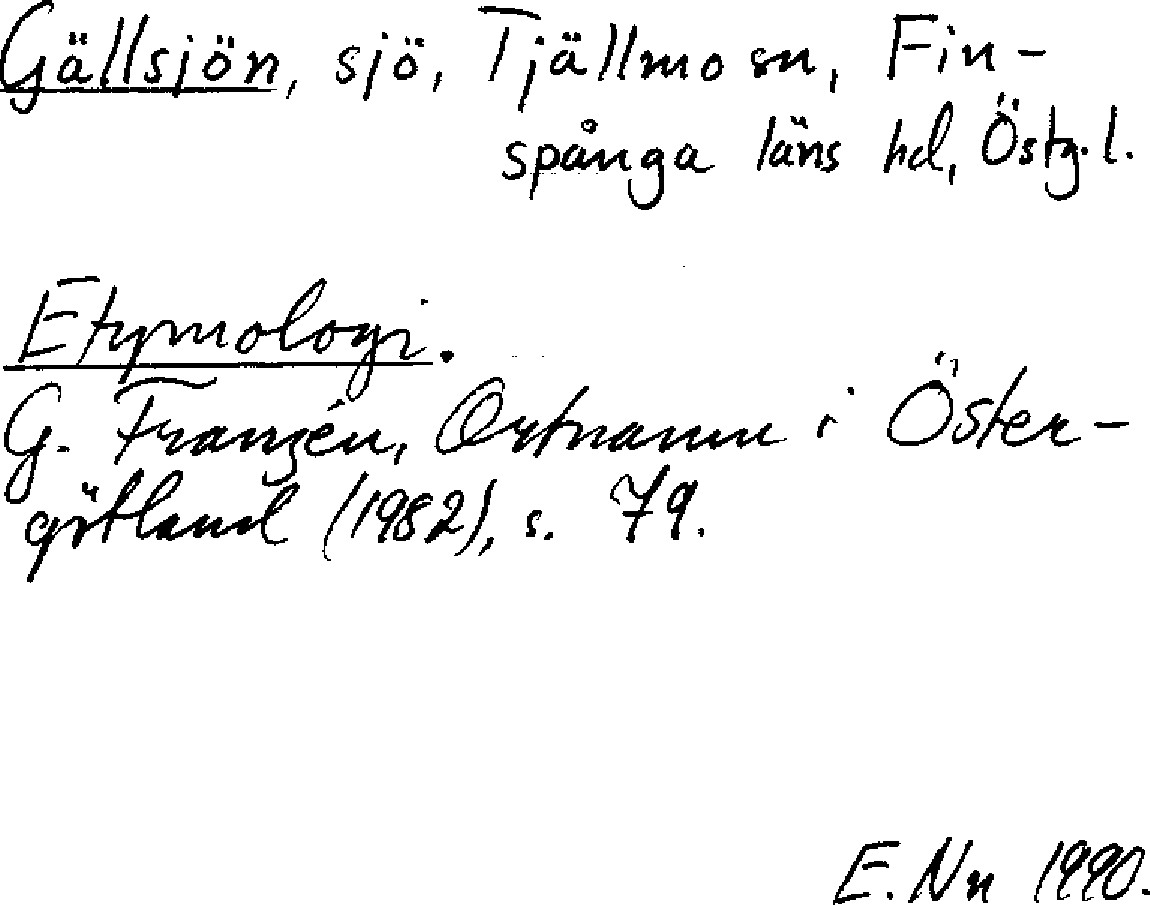 Gällsjön, sjö, Tjällmo sn, Fin-
spånga läns hd, Östg. l.
Etymologi.
G. Franzén, Ortnamn i Öster-
götland (1982), s. 79.
E. Nn 1990.